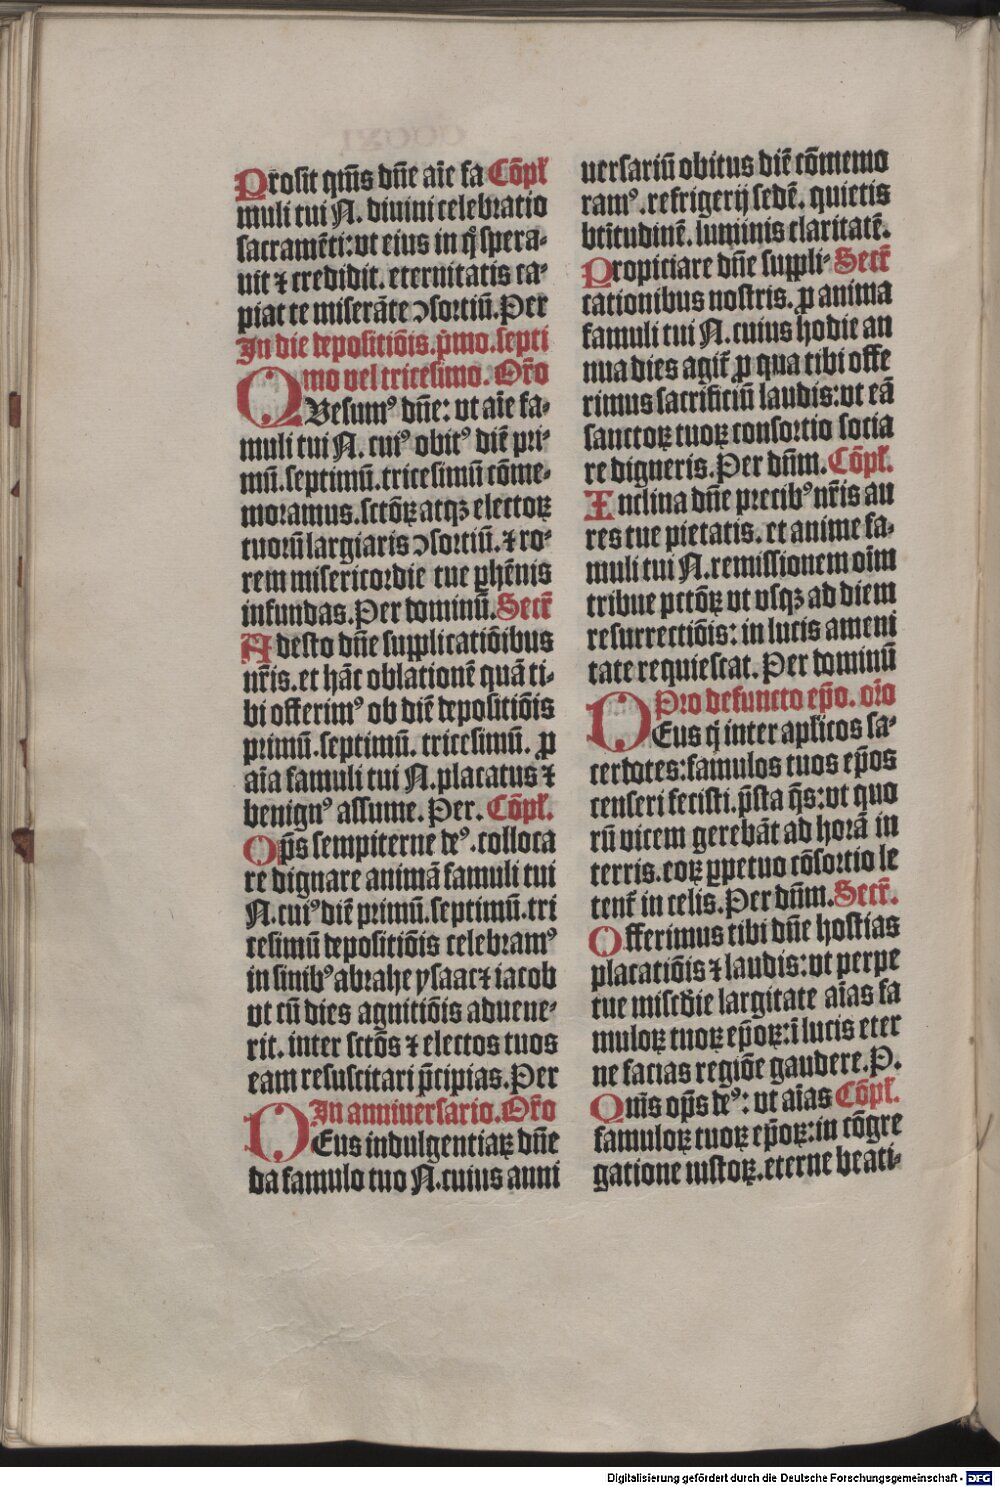 Prosit qm̄s dn̄e aīe fa Cōpl̄
muli tui N. diuini celebratio
sacramēti: vt eius in q̊ spera-
uit ⁊ credidit. eternitatis ca-
piat te miserāte ↄsortiū. Per
In die depositiōis. p̄mo. septi
mo vel tricesimo. Or̄o
QVesumꝰ dn̄e: vt aīe fa-
muli tui N. cuiꝰ obitꝰ diē pri-
mū. septimū. tricesimū cōme-
moramus. sctōꝝ atqꝫ electoꝝ
tuorū largiaris ↄsortiū. ⁊ ro-
rem misericordie tue ꝑhēnis
infundas. Per dominū. Secr̄
Adesto dn̄e supplicatiōibus
nr̄is. et hāc oblationē quā ti-
bi offerimꝰ ob diē depositiōis
primū. septimū. tricesimū. ꝓ
aīa famuli tui N. placatus ⁊
benignꝰ assume. Per. Cōpl̄.
Op̄s sempiterne deꝰ. colloca
re dignare animā famuli tui
N. cuiꝰ diē primū. septimū. tri
cesimū depositiōis celebramꝰ
in sinibꝰ abrahe ysaac ⁊ iacob
vt cū dies agnitiōis aduene-
rit. inter sctōs ⁊ electos tuos
eam resuscitari p̄cipias. Per
In anniuersario. Or̄o
DEus indulgentiaꝝ dn̄e
da famulo tuo N. cuius anni
uersariū obitus diē cōmemo
ramꝰ. refrigerij sedē. quietis
bt̄itudinē. luminis claritatē.
Propiciare dn̄e suppli- Secr̄
cationibus nostris. ꝓ anima
famuli tui N. cuius hodie an
nua dies agit̄ ꝓ qua tibi offe
rimus sacrificiū laudis: vt eā
sanctoꝝ tuoꝝ consortio socia
re digneris. Per dn̄m. Cōpl̄.
Inclina dn̄e precibꝰ nr̄is au
res tue pietatis. et anime fa-
muli tui N. remissionem oīm
tribue pctōꝝ vt vsqꝫ ad diem
resurrectiōis: in lucis ameni
tate requiescat. Per dominū
Pro defuncto ep̄o. or̄o
DEus q̇ inter apl̄icos sa-
cerdotes: famulos tuos ep̄os
censeri fecisti. p̄sta q̄s: vt quo
rū vicem gerebāt ad horā in
terris. eoꝝ ꝑpetuo cōsortio le
tent̄ in celis. Per dn̄m. Secr̄.
Offerimus tibi dn̄e hostias
placatiōis ⁊ laudis: vt perpe
tue misc̄die largitate aīas fa
muloꝝ tuoꝝ ep̄oꝝ: ī lucis eter
ne facias regiōe gaudere. P.
Qm̄s op̄s deꝰ: vt aīas Cōpl̄.
famuloꝝ tuoꝝ ep̄oꝝ: in cōgre
gatione iustoꝝ. eterne beati-
Digitalisierung gefördert durch die Deutsche Forschungsgemeinschaft - DFG